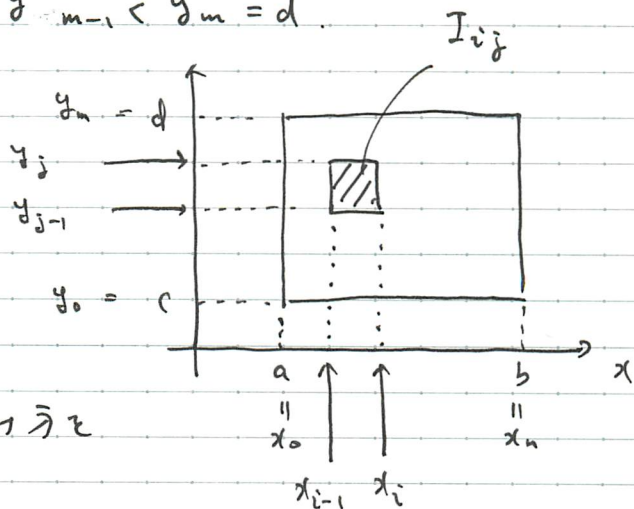 y_{m-1} < y_m = d
I_{ij}
y_m = d
y_j
y_{j-1}
y_0 = c
a b x
= =
x_0 x_n
x_{i-1} x_i